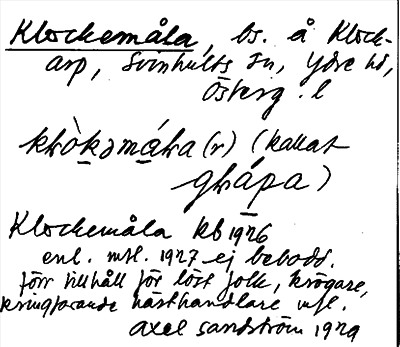 Klockemåla, bs. å Klock-
arp, Svinhults sn, Ydre hd,
Österg. l
klòkəmála (r) (kallat
glápa)
Klockemåla kb 1926
enl. mtl. 1927 ej bebodd.
förr tillhåll för löst folk, krögare,
kringfarande hästhandlare mfl.
Axel Sandström 1929